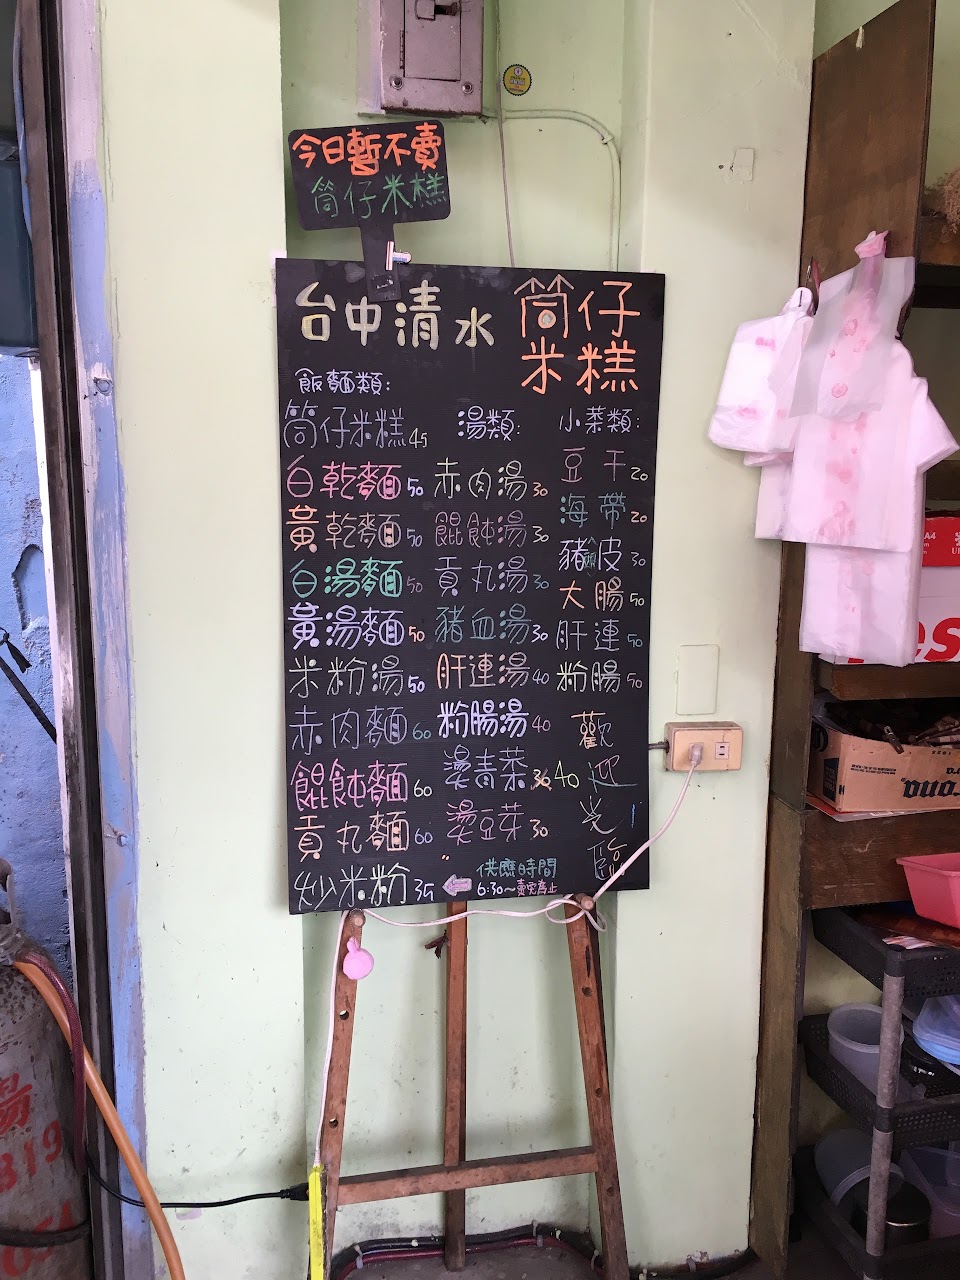 今日暫不賣
筒仔米糕
台中清水 筒仔
米糕
飯麵類:
筒仔米糕 45
白乾麵 50
黃乾麵 50
白湯麵 50
黃湯麵 50
米粉湯 50
赤肉麵 60
餛飩麵 60
貢丸麵 60
炒米粉 35
湯類:
赤肉湯 30
餛飩湯 30
貢丸湯 30
豬血湯 30
肝連湯 40
粉腸湯 40
燙青菜 40
燙豆芽 30
供應時間
6:30~賣完為止
小菜類:
豆干 20
海帶 20
豬頭皮 30
大腸 50
肝連 50
粉腸 50
歡
迎
光
臨
A4
es
rona
湯
819